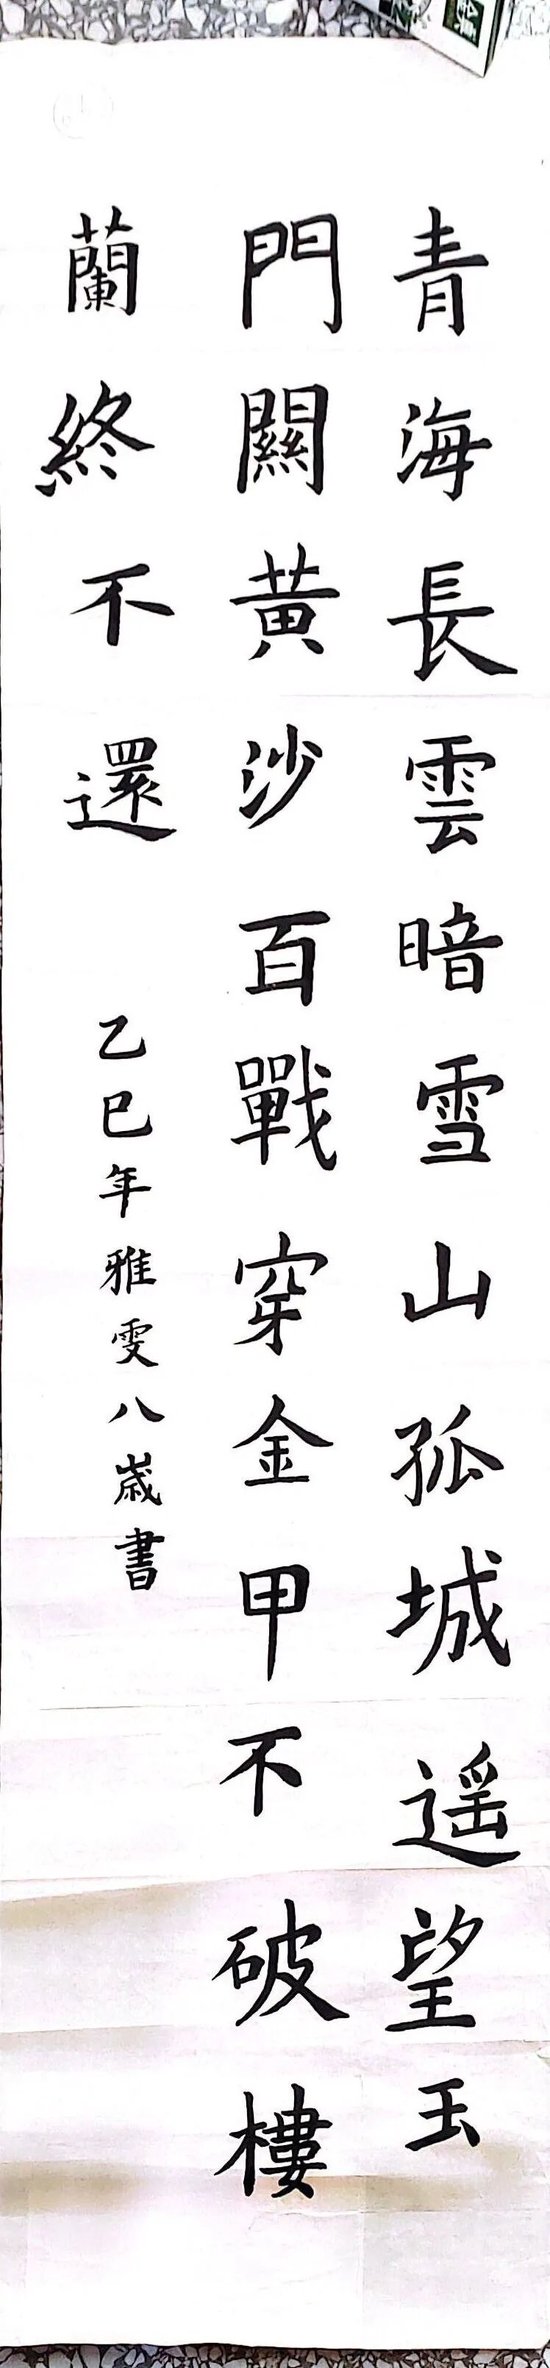 青海長雲暗雪山孤城遥望玉
門關黃沙百戰穿金甲不破樓
蘭終不還
乙巳年雅雯八歲書